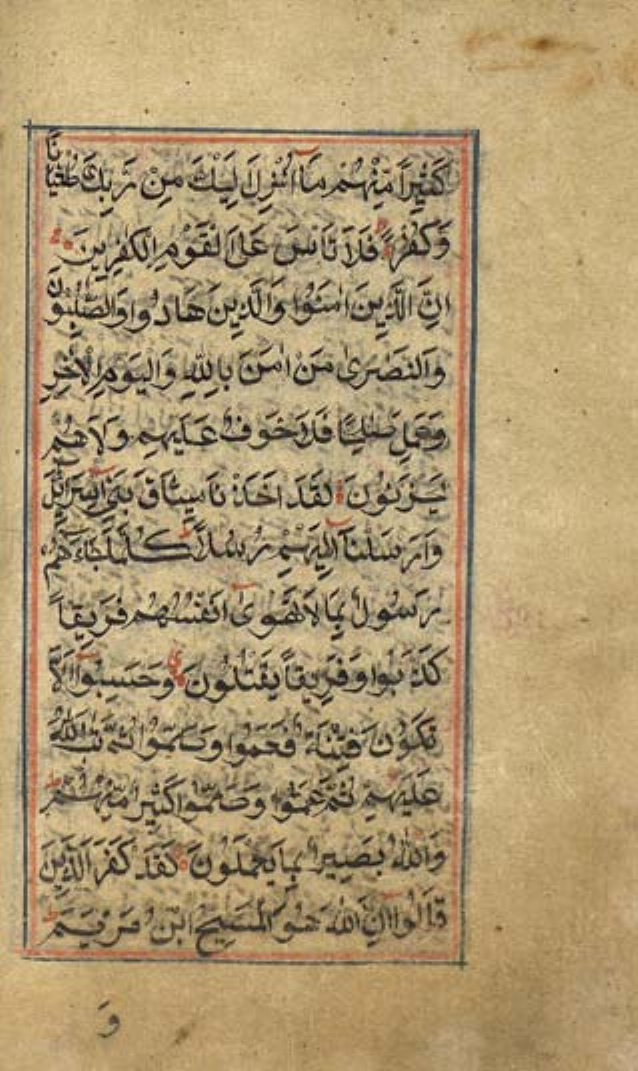 كَثِيرًا مِنْهُمْ مَا اُنْزِلَ اِلَيْكَ مِنْ رَبِّكَ طُغْيَانًا
وَكُفْرًا فَلَا تَاْسَ عَلَى الْقَوْمِ الْكٰفِرِينَ
اِنَّ الَّذِينَ اٰمَنُوا وَالَّذِينَ هَادُوا وَالصَّابِئُونَ
وَالنَّصٰرٰى مَنْ اٰمَنَ بِاللّٰهِ وَالْيَوْمِ الْاٰخِرِ
وَعَمِلَ صٰلِحًا فَلَا خَوْفٌ عَلَيْهِمْ وَلَا هُمْ
يَحْزَنُونَ لَقَدْ اَخَذْنَا مِيثَاقَ بَنِي اِسْرَائِلَ
وَاَرْسَلْنَا اِلَيْهِمْ رُسُلًا كُلَّمَا جَاءَهُمْ
رَسُولٌ بِمَا لَا تَهْوٰى اَنْفُسُهُمْ فَرِيقًا
كَذَّبُوا وَفَرِيقًا يَقْتُلُونَ وَحَسِبُوا اَلَّا
تَكُونَ فِتْنَةٌ فَعَمُوا وَصَمُّوا ثُمَّ تَابَ اللّٰهُ
عَلَيْهِمْ ثُمَّ عَمُوا وَصَمُّوا كَثِيرٌ مِنْهُمْ
وَاللّٰهُ بَصِيرٌ بِمَا يَعْمَلُونَ لَقَدْ كَفَرَ الَّذِينَ
قَالُوا اِنَّ اللّٰهَ هُوَ الْمَسِيحُ ابْنُ مَرْيَمَ
وَ